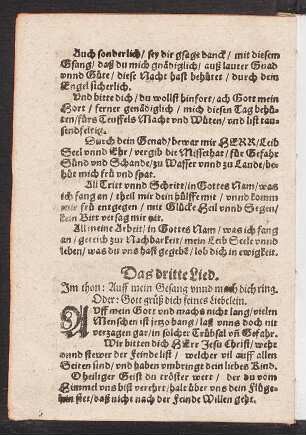 Auch sonderlich / sey dir gsagt danck / mit diesem
Gsang / daß du mich gnädiglich / auß lauter Gnad
vnnd Güte / diese Nacht hast behütet / durch dein
Engel sicherlich.
Vnd bitte dich / du wollst hinfort / ach Gott mein
Hort / ferner genädiglich / mich diesen Tag behü-
ten / fürs Teuffels Macht vnd Wüten / vnd list tau-
sendfeltig.
Durch dein Genad / bewar mir HERR / Leib
Seel vnnd Ehr / vergib die Missethat / für Gefahr
Sünd vnd Schande / zu Wasser vnnd zu Lande / be-
hüt mich frü vnd spat.
All Tritt vnnd Schritt / in Gottes Nam / was
ich fang an / theil mir dein hülffe mit / vnnd komm
mir frü entgegen / mit Glück Heil vnnd Segen /
kein Bitt versag mir nit.
All meine Arbeit / in Gottes Nam / was ich fang
an / gereich zur Nachbarkeit / mein Leib Seele vnd
leben / was du vns hast gegebē / lob dich in ewigkeit.
Das dritte Lied.
Im thon: Auff mein Gesang vnnd mach dich ring.
Oder: Gott grüß dich feines liebelein.
AVff mein Gott vnd machs nicht lang / vielen
Menschen ist jetzo bang / laß vnns doch nit
verzagen gar / in solcher Trübsal vñ Gefahr.
Wir bitten dich HErr Jesu Christ / wehr
vnnd stewer der Feinde list / welcher vil auff allen
Seiten sind / vnd haben vmbringt dein liebes Kind.
O heiliger Geist du tröster wert / der du vom
Himmel vns bist verehrt / halt über vns dein Flüge-
lein stett / daß nicht nach der Feinde Willen geht.